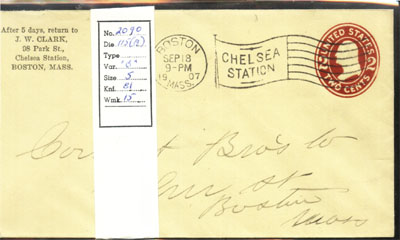 After 5 days, return to
J. W. CLARK,
98 Park St.,
Chelsea Station,
BOSTON, MASS.
No. 2090
Die
Type
Var.
Size 5
Knf. 81
Wmk. 15
BOSTON
SEP 18
9-PM
1907
MASS.
CHELSEA
STATION
UNITED STATES
2 2
TWO CENTS
Bro's to
St
Boston
Mass